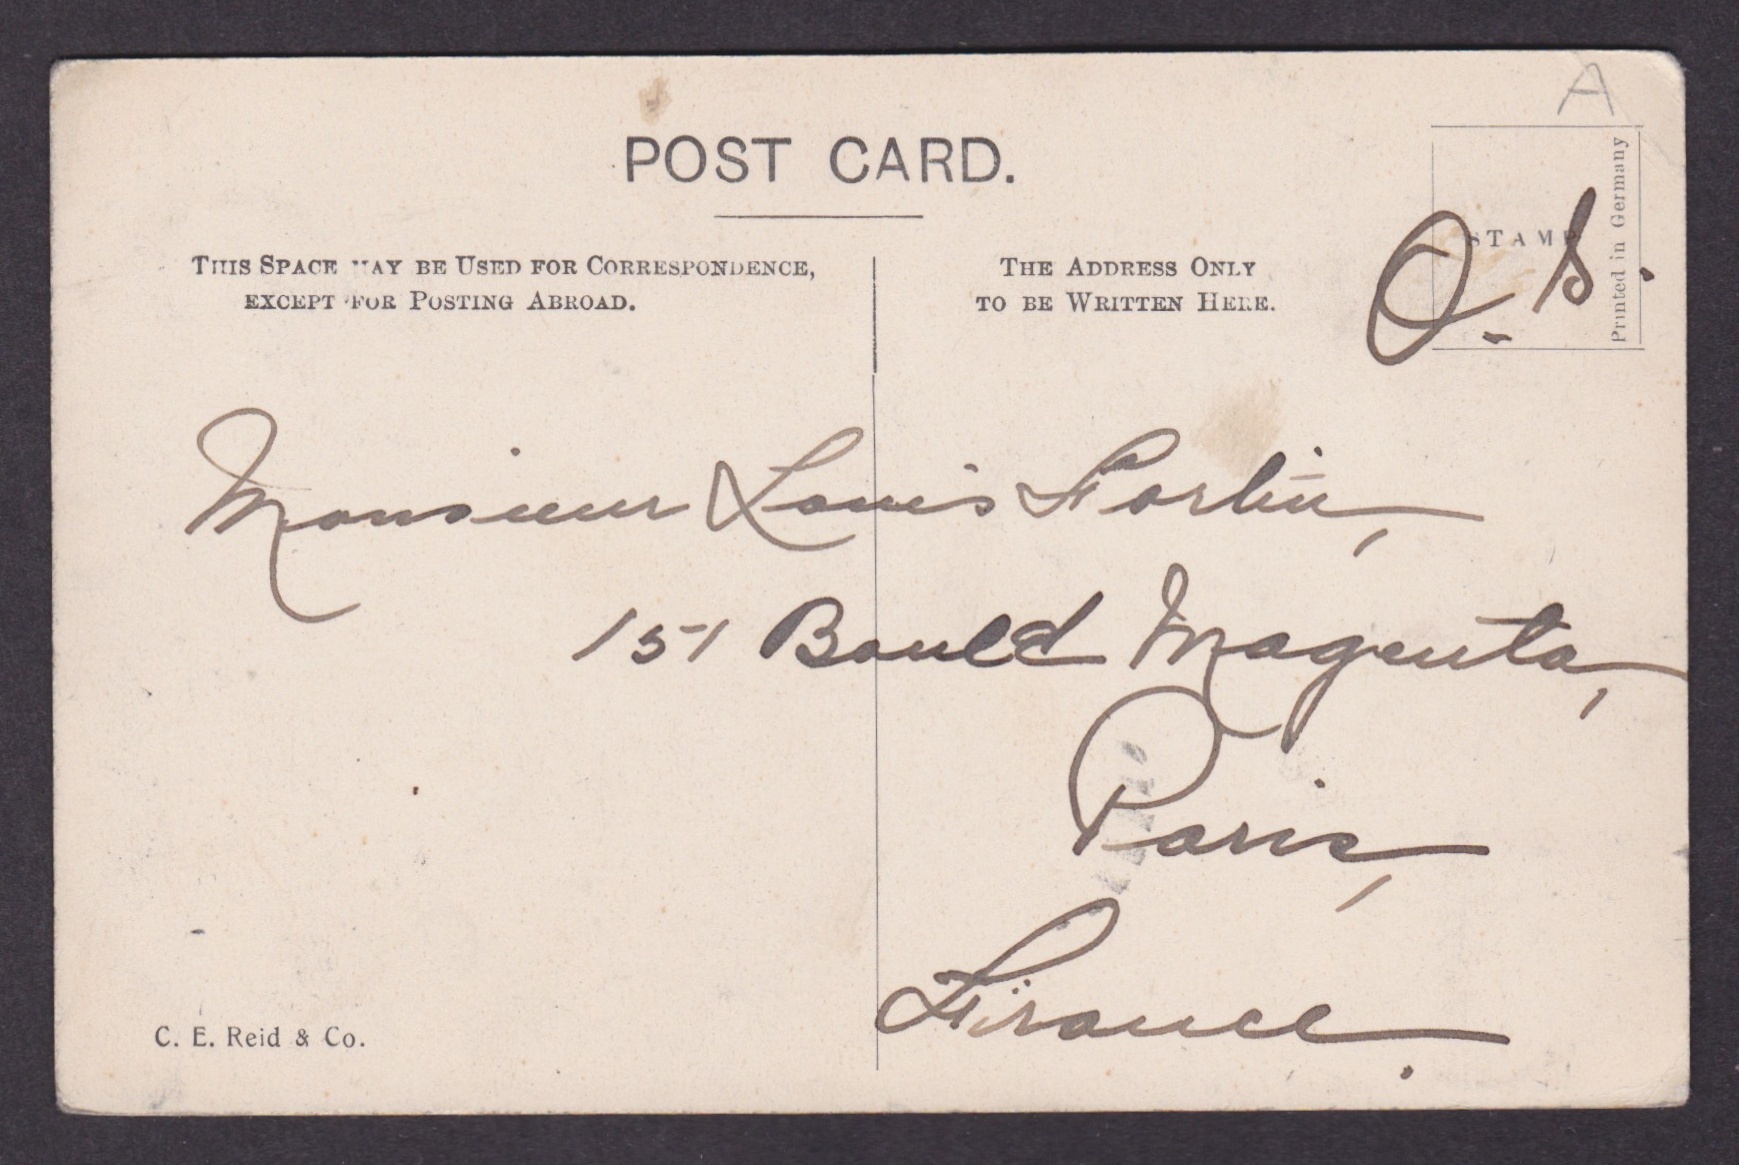 A
POST CARD.
THIS SPACE MAY BE USED FOR CORRESPONDENCE,
EXCEPT FOR POSTING ABROAD.
THE ADDRESS ONLY
TO BE WRITTEN HERE.
STAMP
Printed in Germany
O.S.
Monsieur Louis Fortin,
151 Bould Magenta,
Paris,
France.
C. E. Reid & Co.